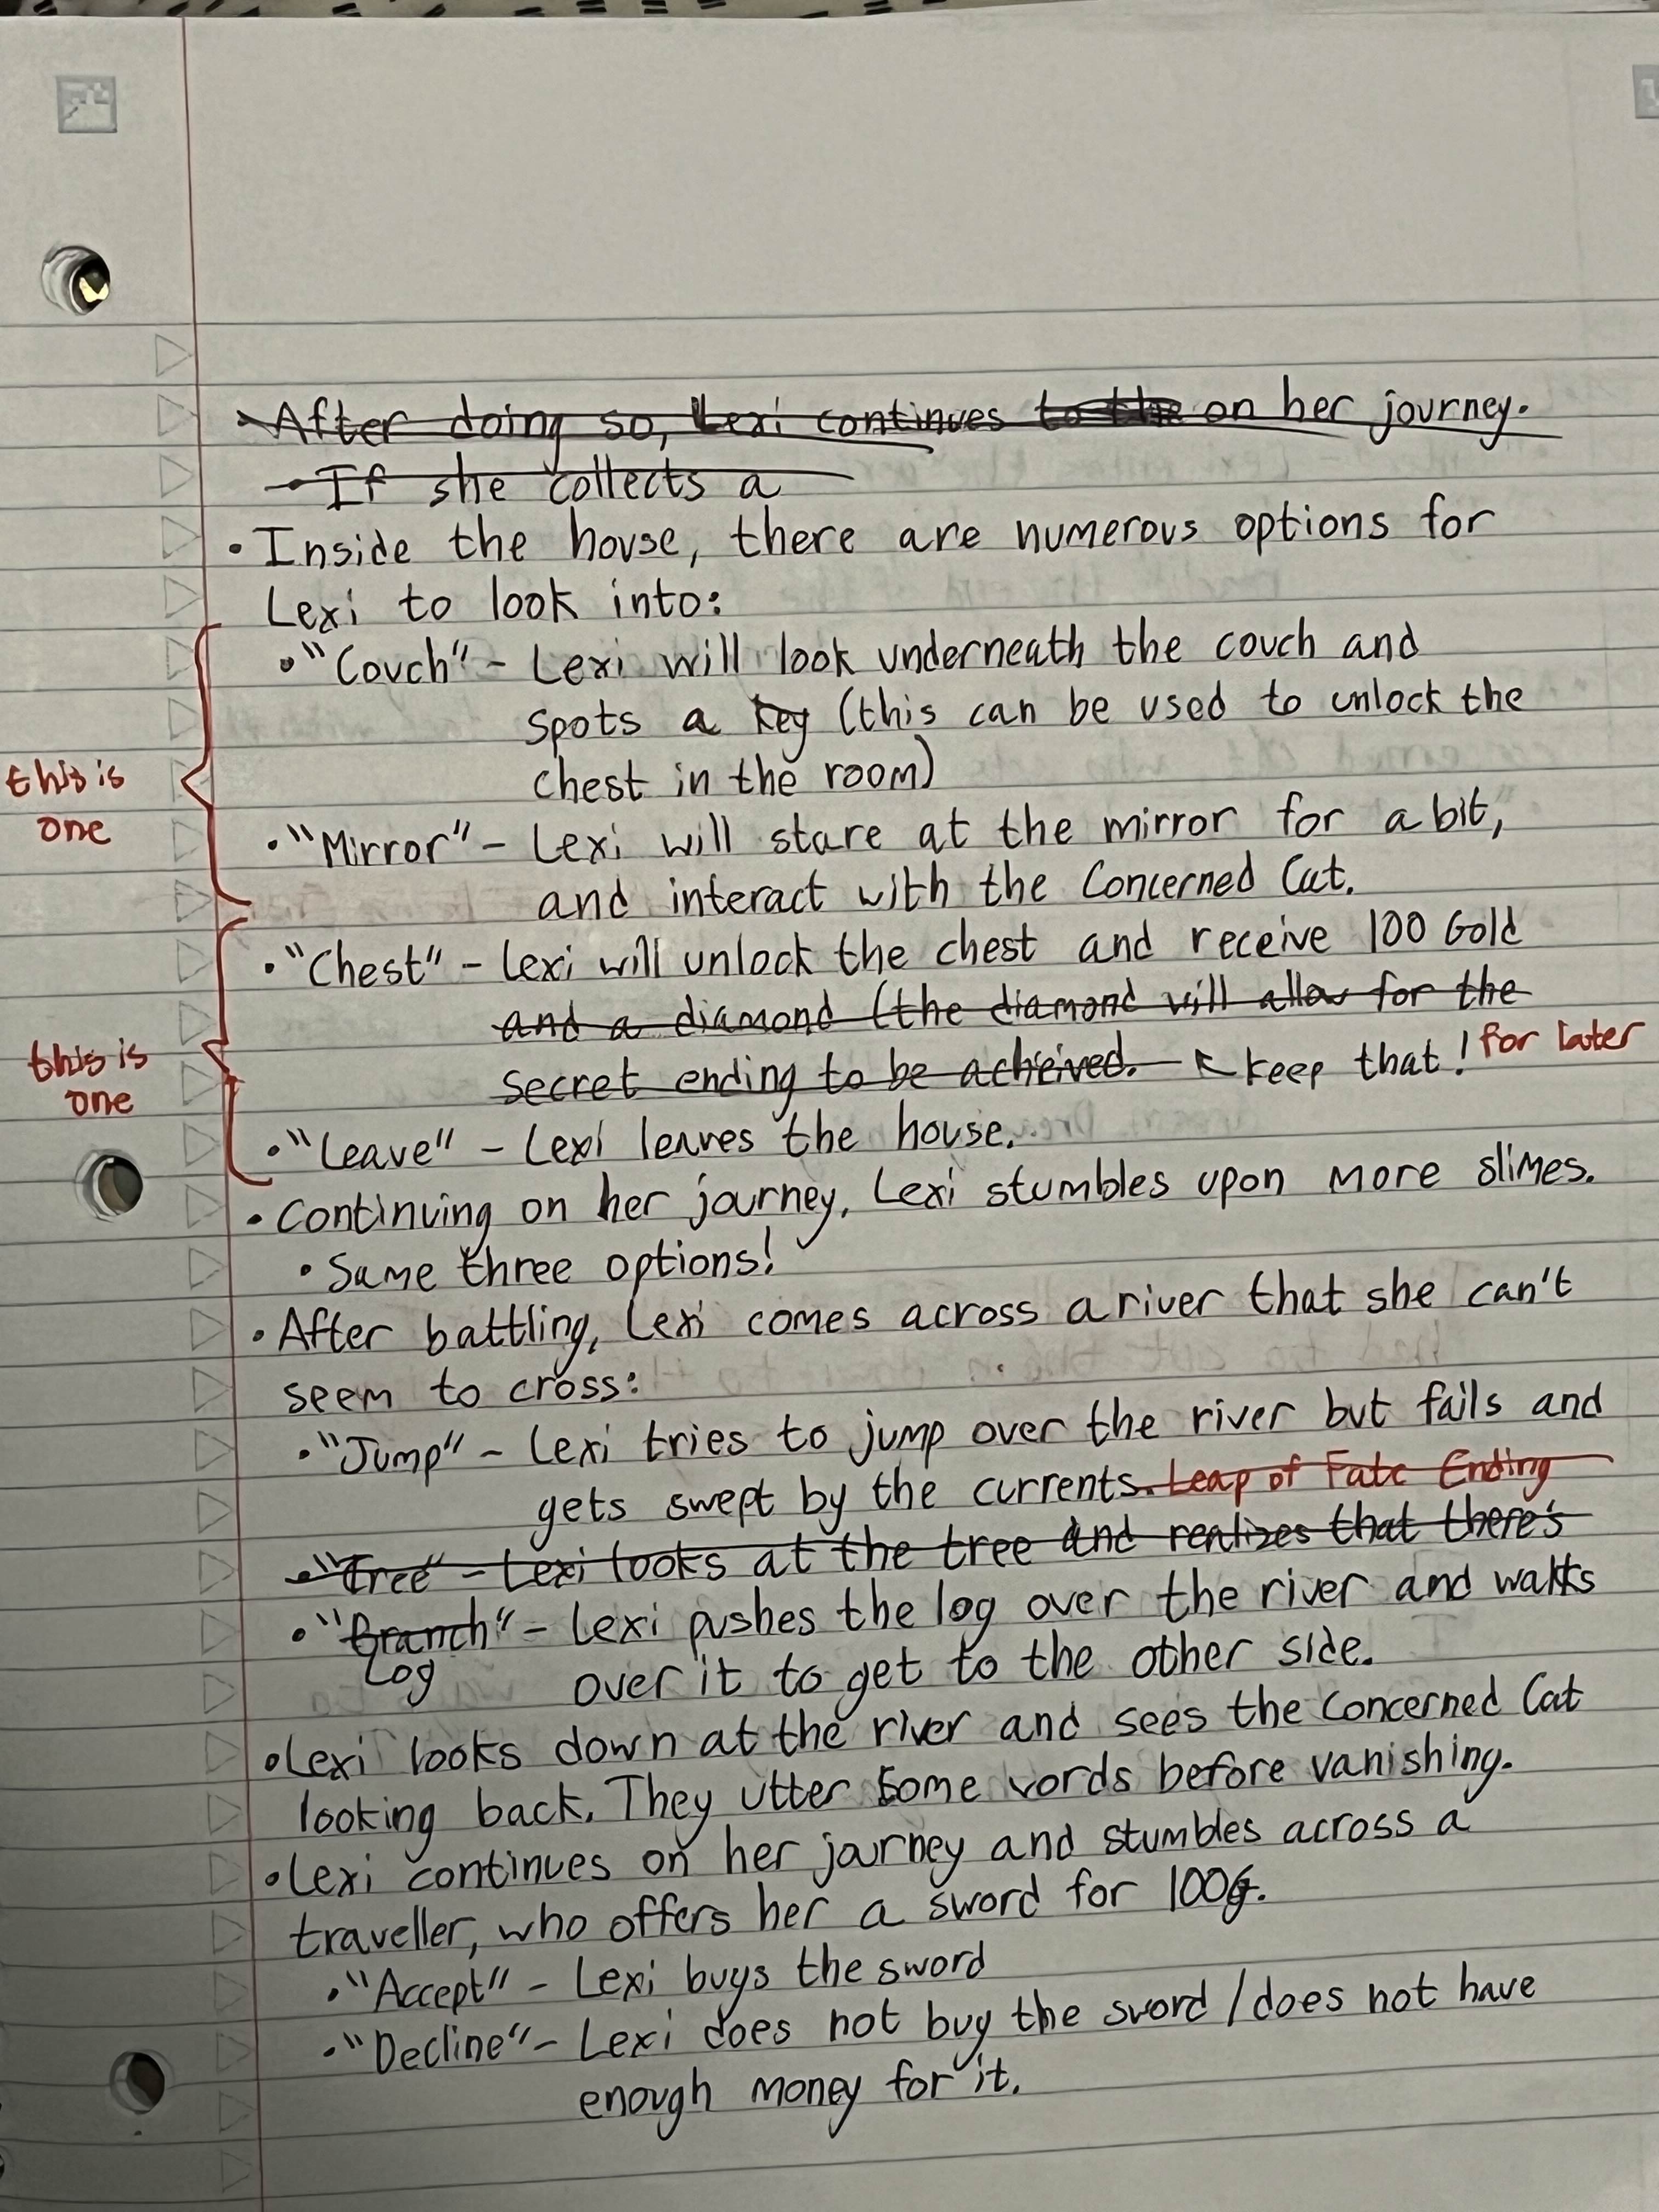 After doing so, Lexi continues to the on her journey.
If she collects a
• Inside the house, there are numerous options for
Lexi to look into:
• "Couch" - Lexi will look underneath the couch and
spots a key (this can be used to unlock the
chest in the room)
this is
one
• "Mirror" - Lexi will stare at the mirror for a bit,
and interact with the Concerned Cat.
• "Chest" - Lexi will unlock the chest and receive 100 Gold
and a diamond (the diamond will allow for the
secret ending to be acheived. ↖ keep that! for later
this is
one
• "Leave" - Lexi leaves the house.
• Continuing on her journey, Lexi stumbles upon more slimes.
• Same three options!
• After battling, Lexi comes across a river that she can't
seem to cross:
• "Jump" - Lexi tries to jump over the river but fails and
gets swept by the currents. Leap of Fate Ending
• "Tree" - Lexi looks at the tree and realizes that there's
• "Branch" - Lexi pushes the log over the river and walks
Log over it to get to the other side.
• Lexi looks down at the river and sees the Concerned Cat
looking back. They utter some words before vanishing.
• Lexi continues on her journey and stumbles across a
traveller, who offers her a sword for 100G.
• "Accept" - Lexi buys the sword
• "Decline" - Lexi does not buy the sword / does not have
enough money for it.